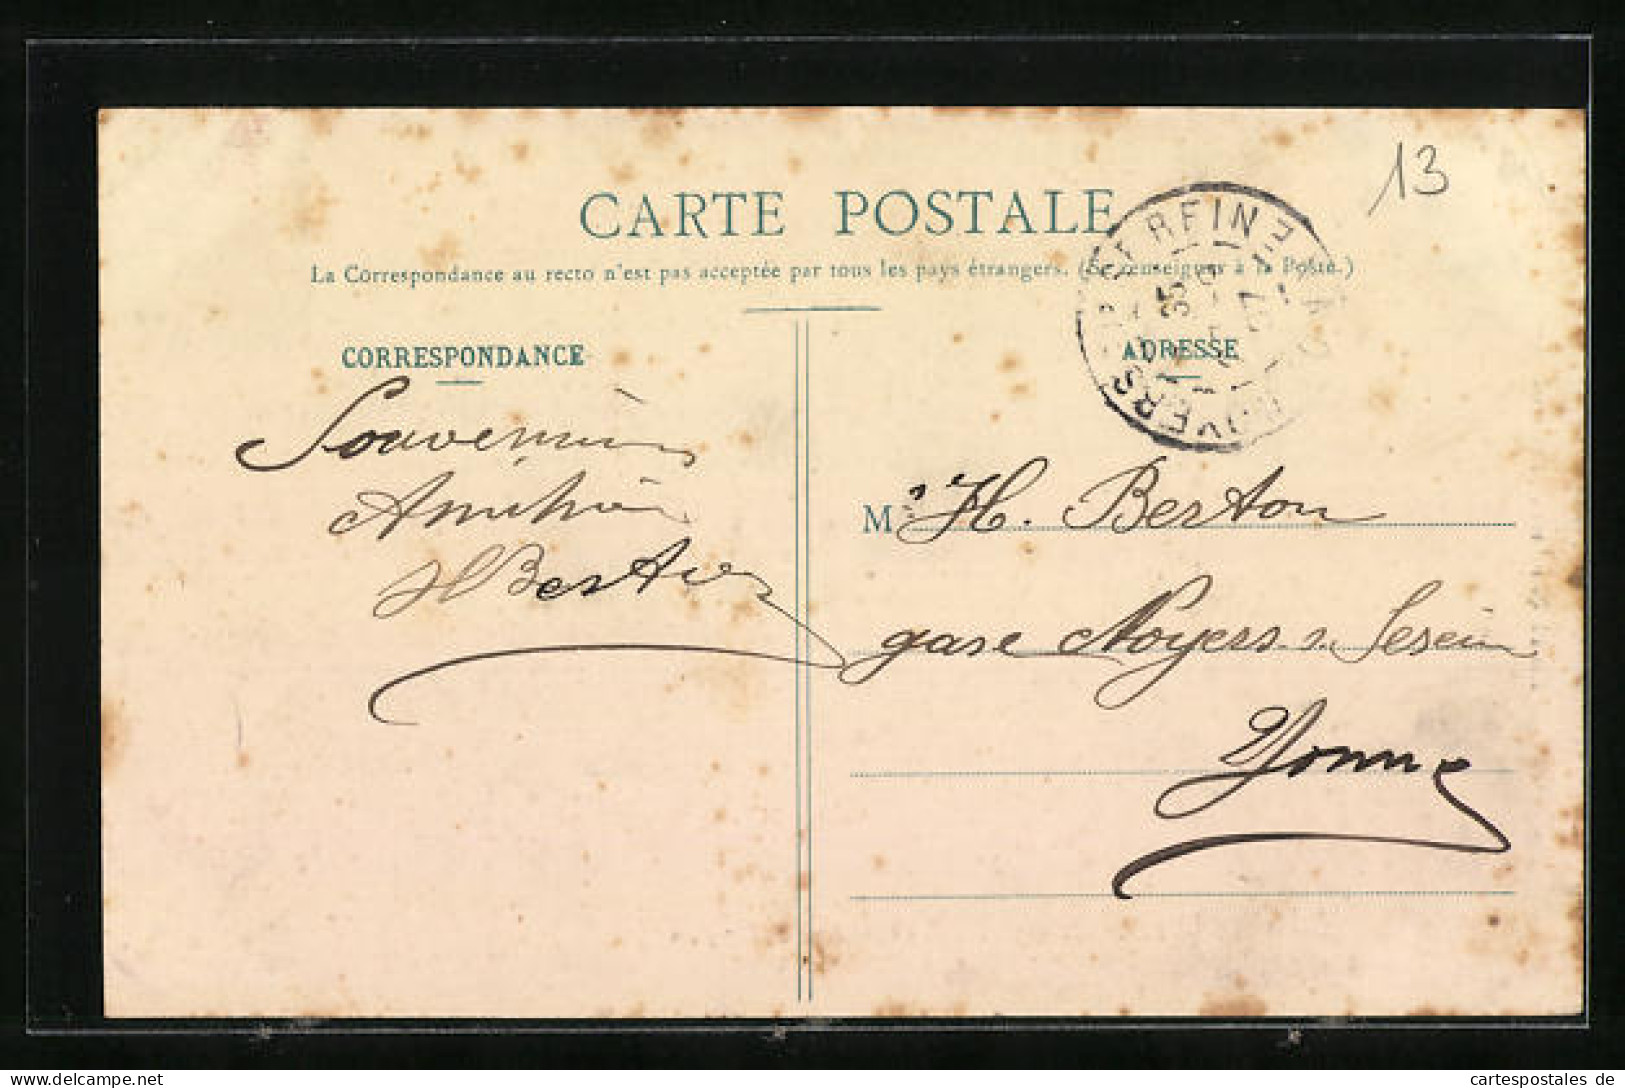 13
CARTE POSTALE
La Correspondance au recto n'est pas acceptée par tous les pays étrangers. (Se renseigner à la Poste.)
CORRESPONDANCE
ADRESSE
Souvenir
Amitié
HBertier
M. H. Berton
gare Noyers s. Serein
Yonne
cartespostales de